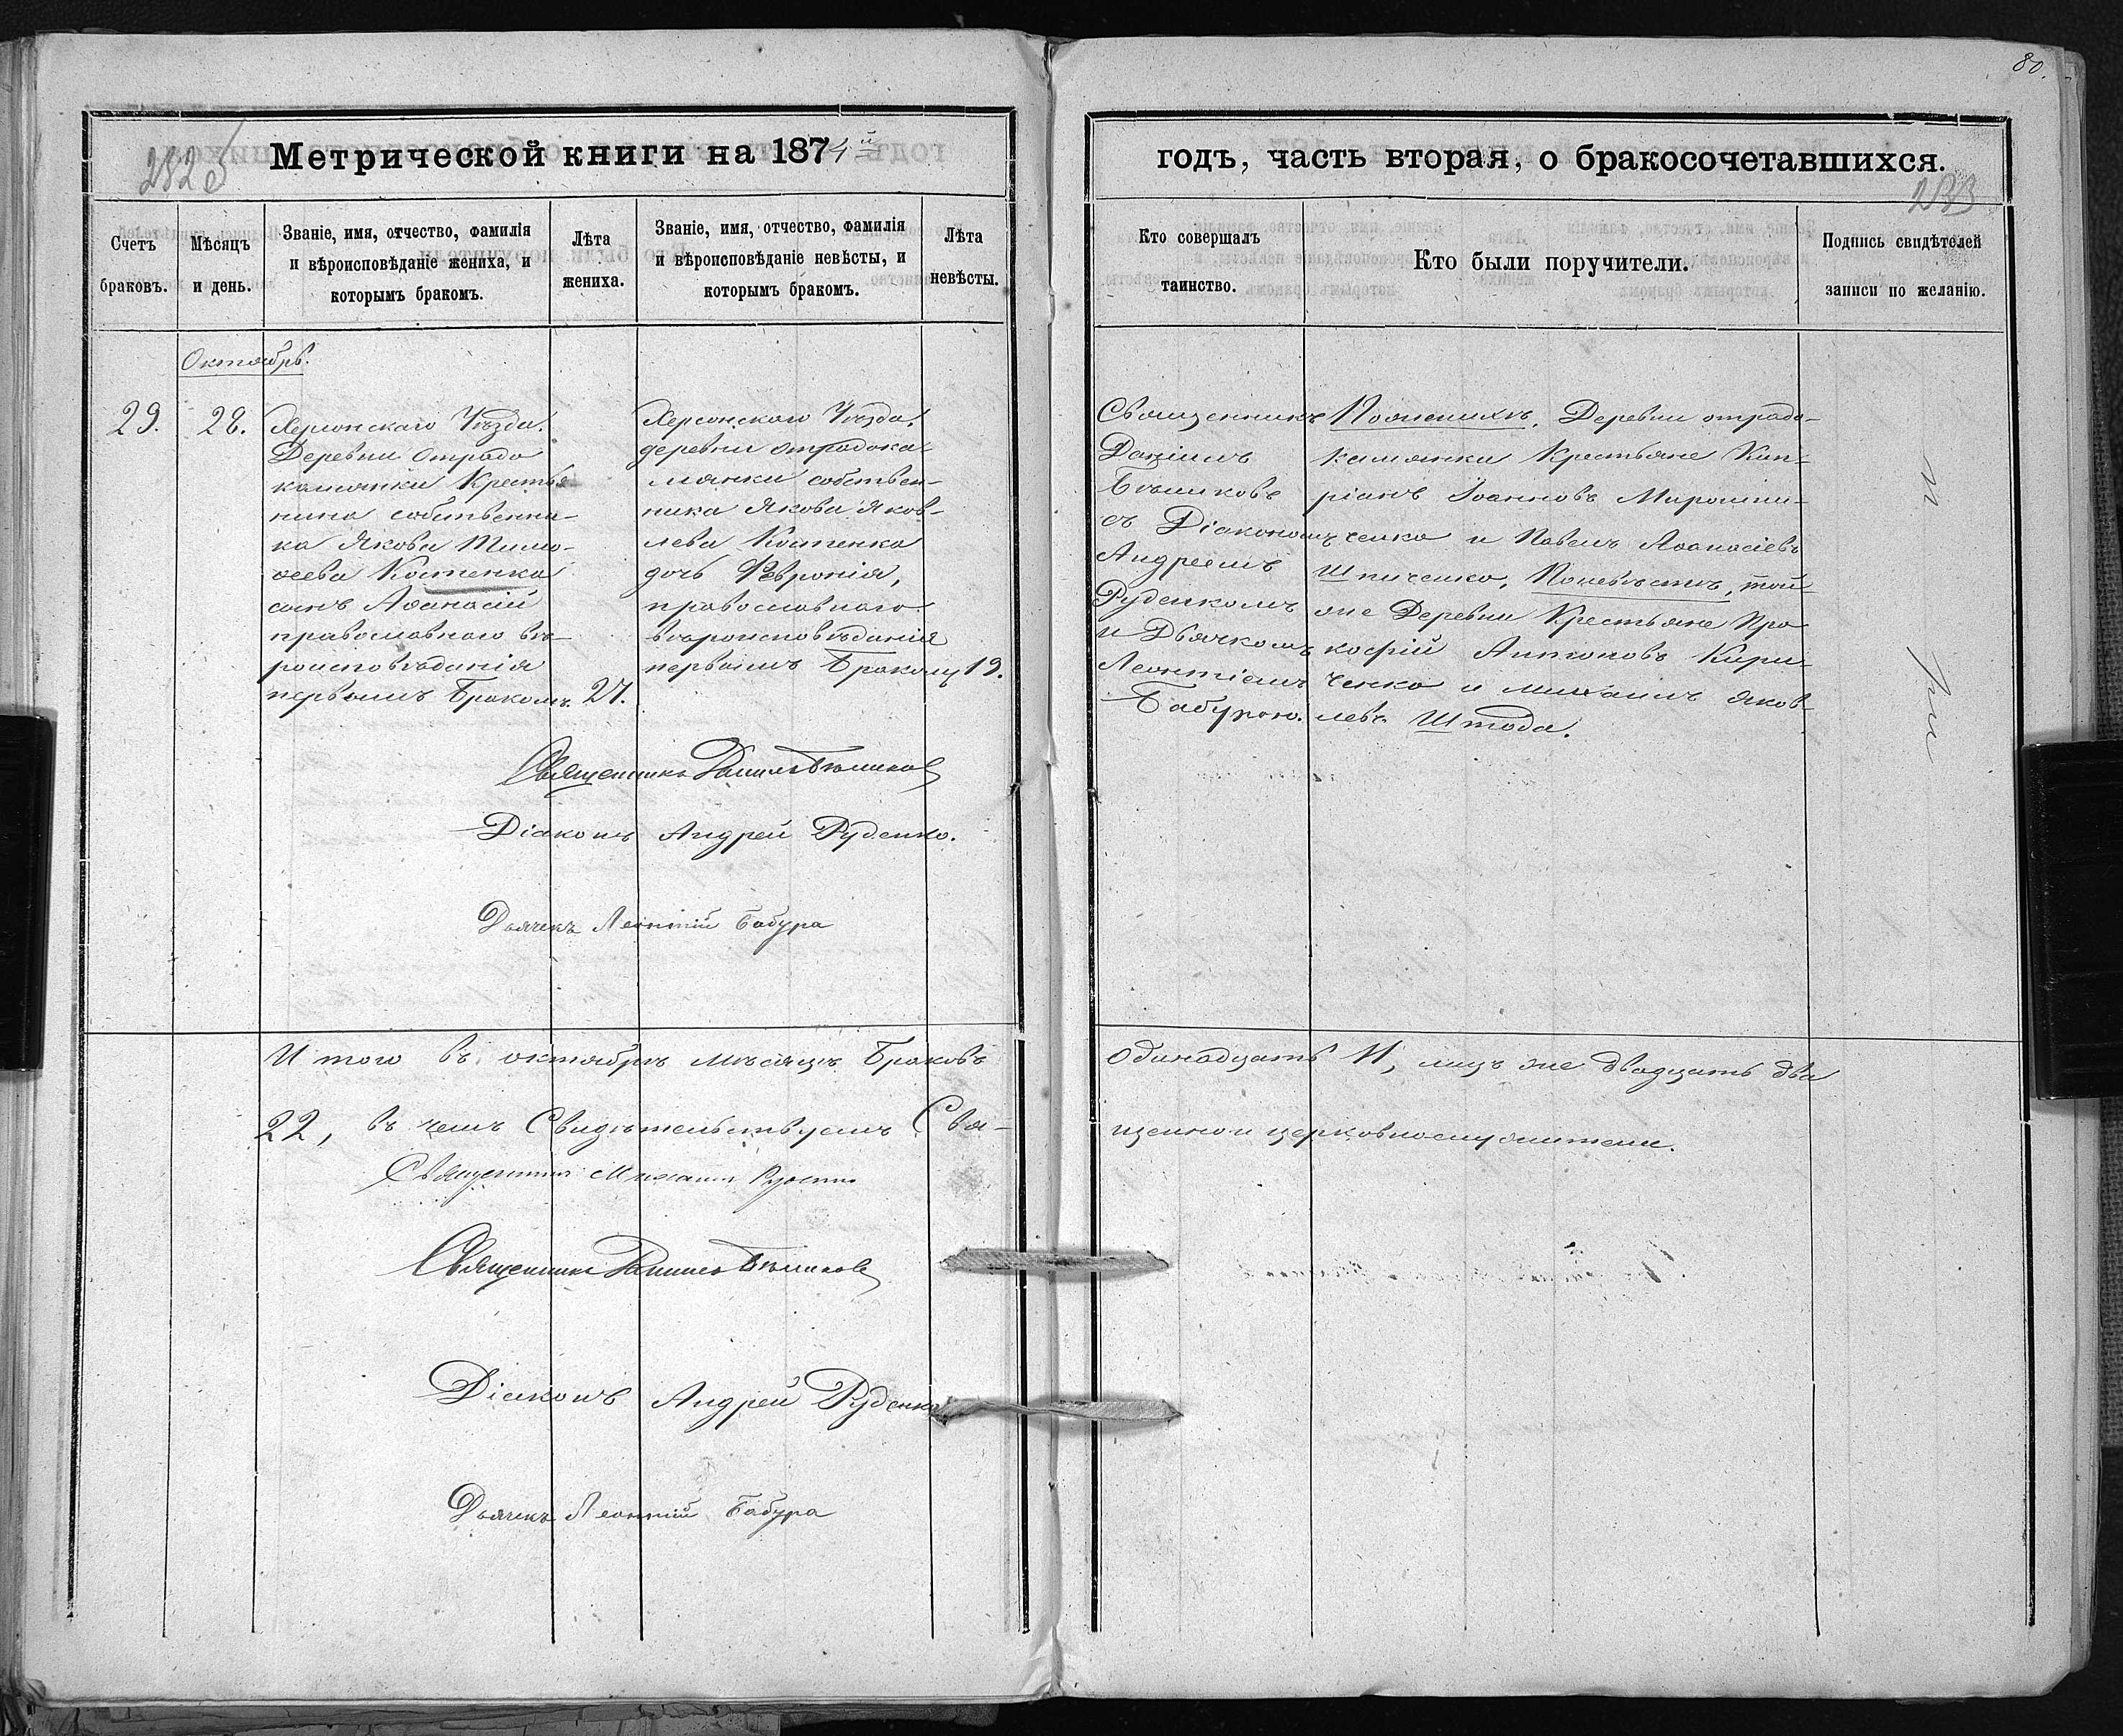 80.
Метрической книги на 1874й
годъ, часть вторая, о бракосочетавшихся.
282об
283
Счетъ
браковъ.
Мѣсяцъ
и день.
Званіе, имя, отчество, фамилія
и вѣроисповѣданіе жениха, и
которымъ бракомъ.
Лѣта
жениха.
Званіе, имя, отчество, фамилія
и вѣроисповѣданіе невѣсты, и
которымъ бракомъ.
Лѣта
невѣсты.
Кто совершалъ
таинство.
Кто были поручители.
Подпись свидѣтелей
записи по желанію.
Октябрь.
29.
28.
Херсонскаго Уѣзда.
Деревни Отрадо
камянки Крестья
нина собственни-
ка Якова Тимо-
ѳеева Костенка
сынъ Аѳанасій
православнаго вѣ-
роисповѣданія
первымъ бракомъ.
27.
Херсонскаго Уѣзда,
деревни отрадока-
мянки собствен-
ника Якова Яков-
лева Костенка
дочь Февронія,
православнаго
вѣроисповѣданія
первымъ бракомъ
19.
Священникъ
Даніилъ
Бѣликовъ
съ Діакономъ
Андреемъ
Руденкомъ
и Дьячкомъ
Леонтіемъ
Бабурою.
По женихѣ, Деревни отрадо-
камянки Крестьяне Кип-
ріанъ Іоанновъ Мирошни-
ченко и Павелъ Аѳанасіевъ
Шпиченко, По невѣстѣ, той-
же Деревни Крестьяне Про
кофій Антоновъ Кири-
ченко и Михаилъ Яков
левъ Штода.
Священникъ Даніилъ Бѣликовъ
Діаконъ Андрей Руденко.
Дьячекъ Леонтій Бабура
И того въ октябрѣ мѣсяцѣ браковъ
одинадцать 11, лицъ же двадцать два
22, въ чемъ Свидѣтельствуемъ Свя-
щенно и церковнослужители.
Священникъ Михаилъ
Священникъ Даніилъ Бѣликовъ
Діаконъ Андрей Руденко
Дьячекъ Леонтій Бабура